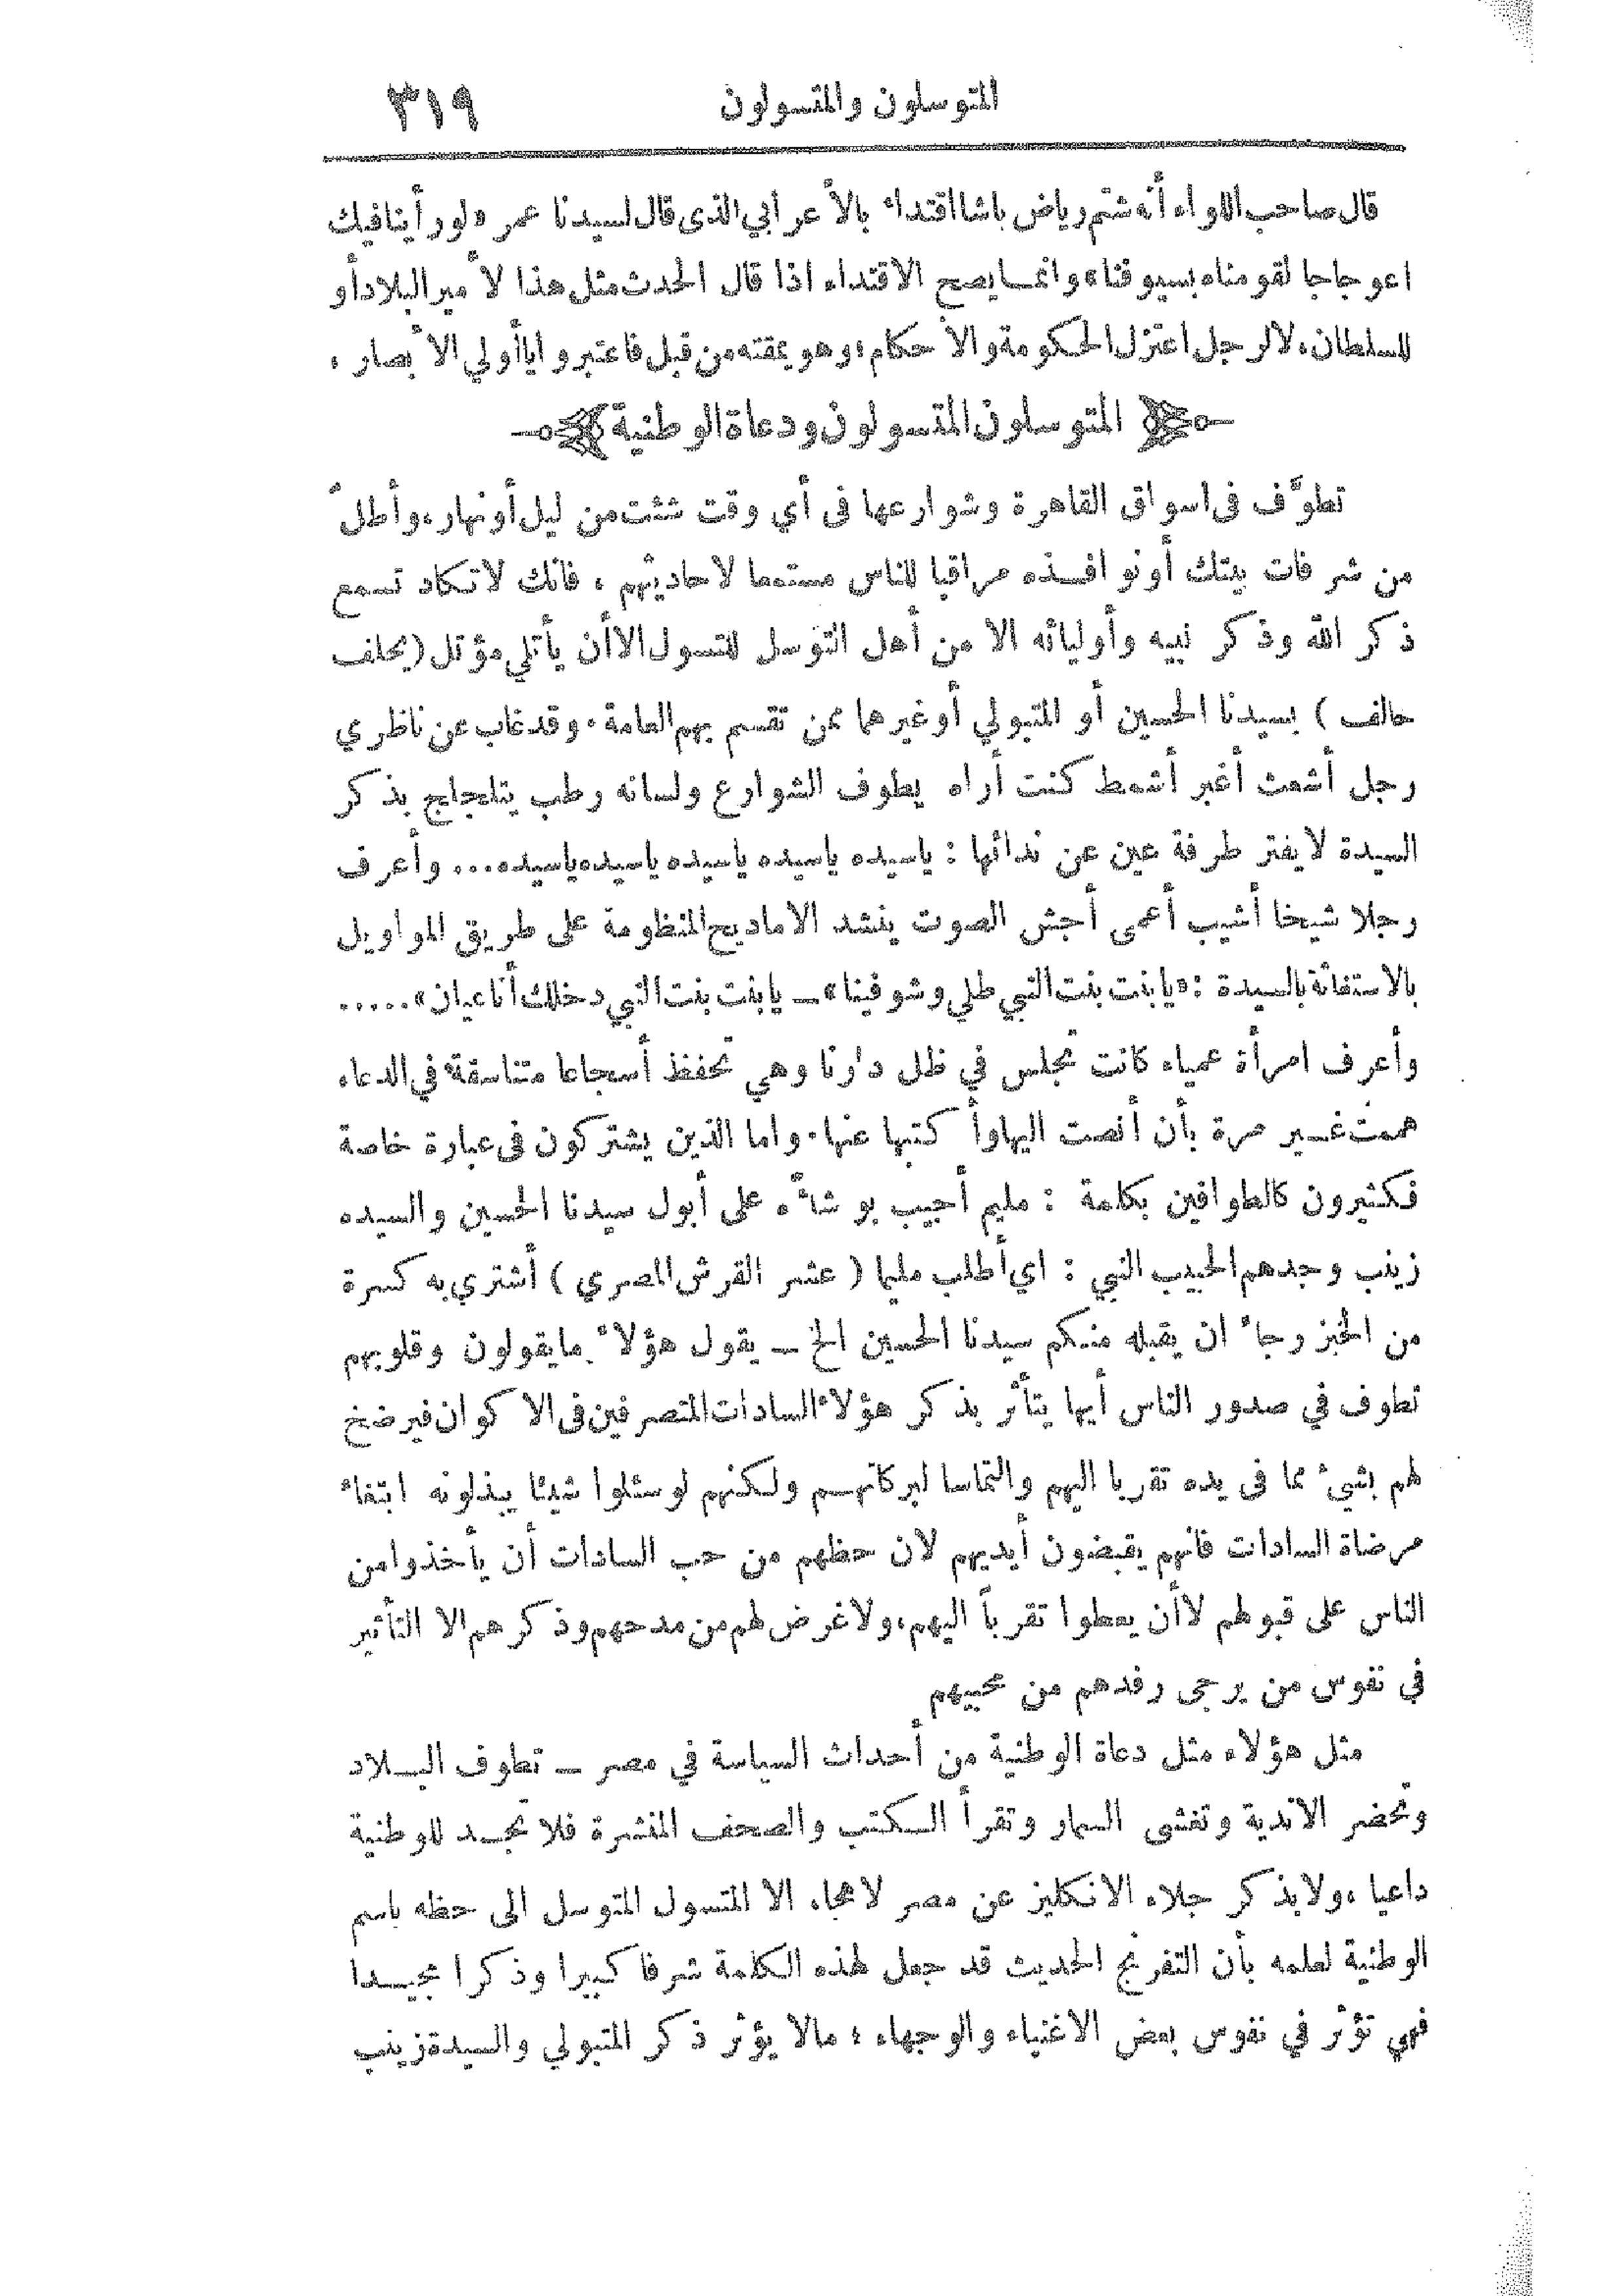 المتوسلون والمتسولون ٣١٩
قال صاحب اللواء أنه شتم رياض باشا اقتداء بالأعرابي الذى قال لسيدنا عمر «لو رأينا فيك
اعوجاجا لقومناه بسيوفنا» وانمـا يصح الاقتداء اذا قال الحدث مثل هذا لأمير البلاد أو
للسلطان، لالرجل اعتزل الحكومة والأحكام، وهو يمقته من قبل فاعتبروا ياأولي الأبصار،
المتوسلون المتسولون ودعاة الوطنية
تطوَّف فى اسواق القاهرة وشوارعها فى أي وقت شئت من ليل أو نهار، وأطلّ
من شرفات بيتك أو نوافـذه مراقبا للناس مستمعا لاحاديثهم، فانك لاتكاد تسمع
ذكر الله وذكر نبيه وأوليائه الا من أهل التوسل للتسول الا أن يأتلي مؤتل (يحلف
حالف) بسيدنا الحسين أو المتبولي أو غيرهما ممن تقسم بهم العامة. وقد غاب عن ناظري
رجل أشعث أغبر أشمط كنت أراه يطوف الشوارع ولسانه رطب يتلجلج بذكر
السيدة لا يفتر طرفة عين عن ندائها : ياسيده ياسيده ياسيده ياسيده ياسيده... وأعرف
رجلا شيخا أشيب أعمى أجش الصوت ينشد الاماديح المنظومة على طريق المواويل
بالاستغاثة بالسيدة : «يا بنت بنت النبي طلي وشوفينا» ـ يا بنت بنت النبي دخلك أنا عيان» .....
وأعرف امرأة عمياء كانت تجلس في ظل دارنا وهي تحفظ أسجاعا متناسقة في الدعاء
هممت غـير مرة بأن أنصت اليها وأكتبها عنها. واما الذين يشتركون فى عبارة خاصة
فكثيرون كالطوافين بكلمة : مليم أجيب بو شأه على أبول سيدنا الحسين والسيده
زينب وجدهم الحبيب النبي : اي أطلب مليما (عشر القرش المصري) أشتري به كسرة
من الخبز رجاء ان يقبله منكم سيدنا الحسين الخ ـ يقول هؤلاء ما يقولون وقلوبهم
تطوف في صدور الناس أيها يتأثر بذكر هؤلاء السادات المتصرفين فى الاكوان فيرضخ
لهم بشيء مما فى يده تقربا اليهم والتماسا لبركاتهـم ولكنهم لو سئلوا شيئا يبذلونه ابتغاء
مرضاة السادات فانهم يقبضون أيديهم لان حظهم من حب السادات أن يأخذوا من
الناس على قبولهم لاأن يعطوا تقرباً اليهم، ولا غرض لهم من مدحهم وذكرهم الا التأثير
في نفوس من يرجى رفدهم من محبيهم
مثل هؤلاء مثل دعاة الوطنية من أحداث السياسة في مصر ـ تطوف البـلاد
وتحضر الاندية وتغشى السمار وتقرأ الـكتب والصحف المنشرة فلا تجـد للوطنية
داعيا، ولا يذكر جلاء الانكليز عن مصر لاهجا، الا المتسول المتوسل الى حظه باسم
الوطنية لعلمه بأن التفرنج الحديث قد جعل لهذه الـكلمة شرفا كبيرا وذكرا مجيـدا
فهي تؤثر في نفوس بعض الاغنياء والوجهاء، مالا يؤثر ذكر المتبولي والسيدة زينب